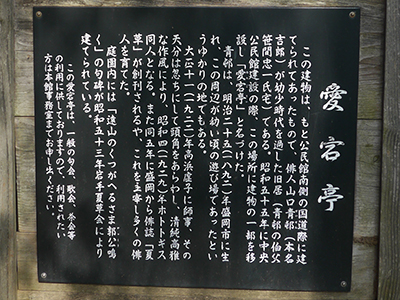 愛宕亭
この建物は、もと公民館南側の国道際に建
てられてあったもので、俳人山口青邨（本名
吉郎）が幼少時代を過した旧居（青邨の伯父
笹間宏氏宅）である。昭和五十五年に中央
公民館建設の際、この場所に建物の一部を移
設し「愛宕亭」と名づけた。
青邨は、明治二十五（一八九二）年盛岡市に生
れ、この周辺が幼い頃の遊び場であったとい
うゆかりの地でもある。
大正十一（一九二二）年高浜虚子に師事、その
天分は忽ちにして頭角をあらわし、清純高雅
な作風により、昭和四（一九二九）年ホトトギス
同人となる。また同五年に盛岡から俳誌「夏
草」が創刊されるや、これを主宰し多くの俳
人を育てた。
庭園内には「遠山のくつがへるさま郭公鳴
く」の句碑が昭和五十三年岩手夏草会により
建てられている。
この愛宕亭は、一般の句会、歌会、茶会等
の利用に供しておりますので、利用されたい
方は本館事務室までお申し出ください。